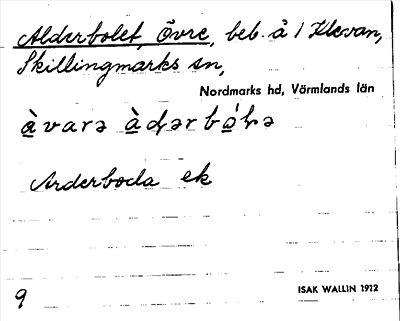 Alderbolet, Övre, beb. å / Klevan,
Skillingmarks sn,
Nordmarks hd, Värmlands län
Arderboda ek
9
ISAK WALLIN 1912